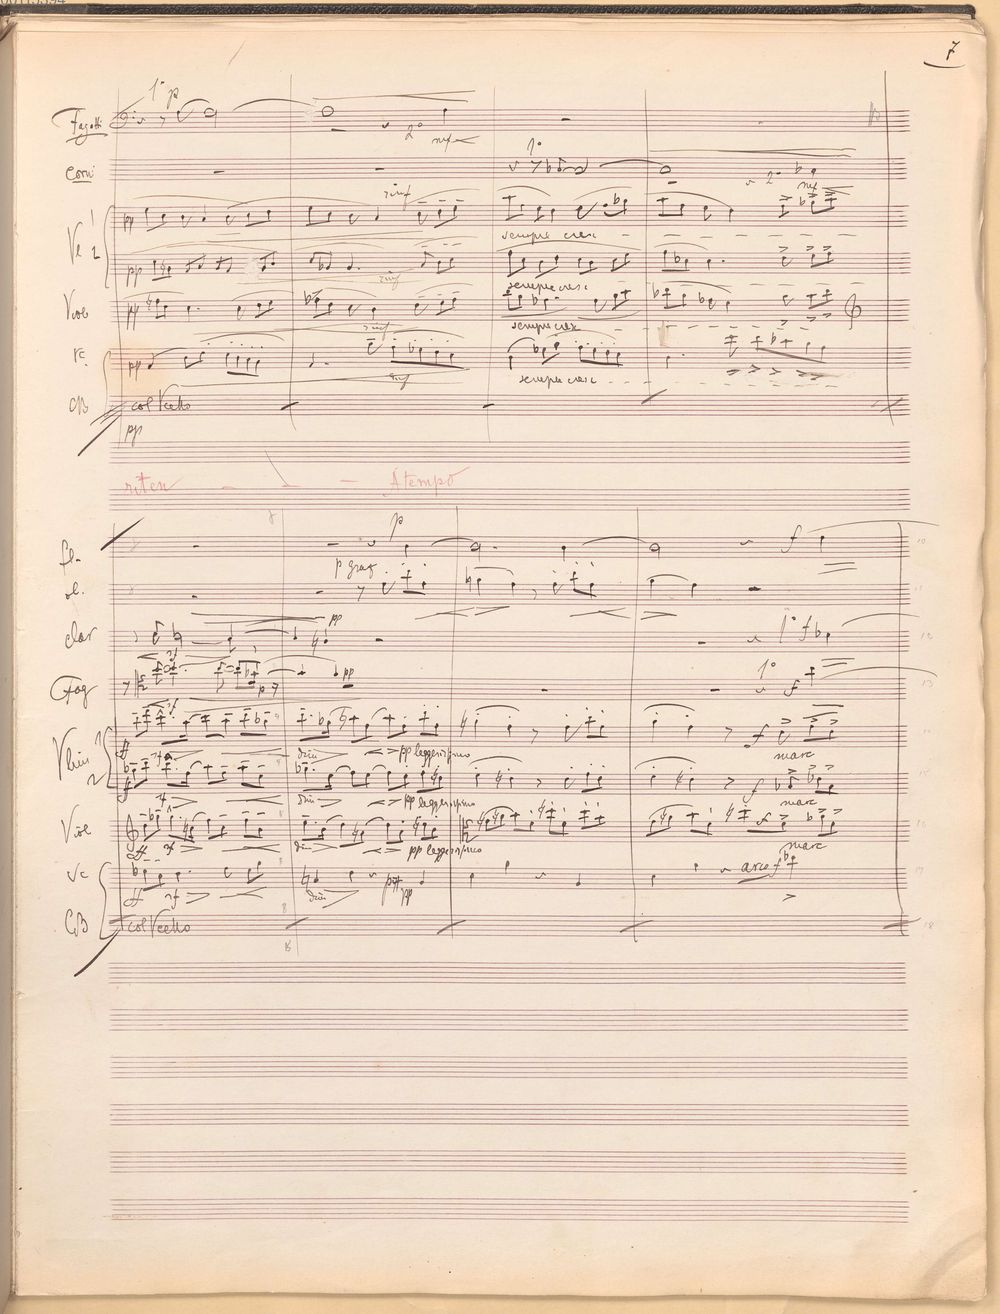 7
1° p
Fagotti
2°
mf
Corni
1°
2°
mf
Vl 1
2
pp
rinf
sempre cresc
pp
rinf
sempre cresc
Viole
pp
rinf
sempre cresc
Vc.
pp
rinf
sempre cresc
CB
col Vcello
pp
riten — — — A tempo
p
fl.
f
p graz.
ob.
clar
pp
1° f
Fag
sf
p
pp
1°
f
Vlini 1
2
ff
sf
dim
pp leggerissimo
f
marc
ff
sf
dim
pp leggerissimo
f
marc
Viole
ff
sf
dim
pp leggerissimo
f
marc
Vc
ff
sf
dim
pp
arco f
CB
col Vcello